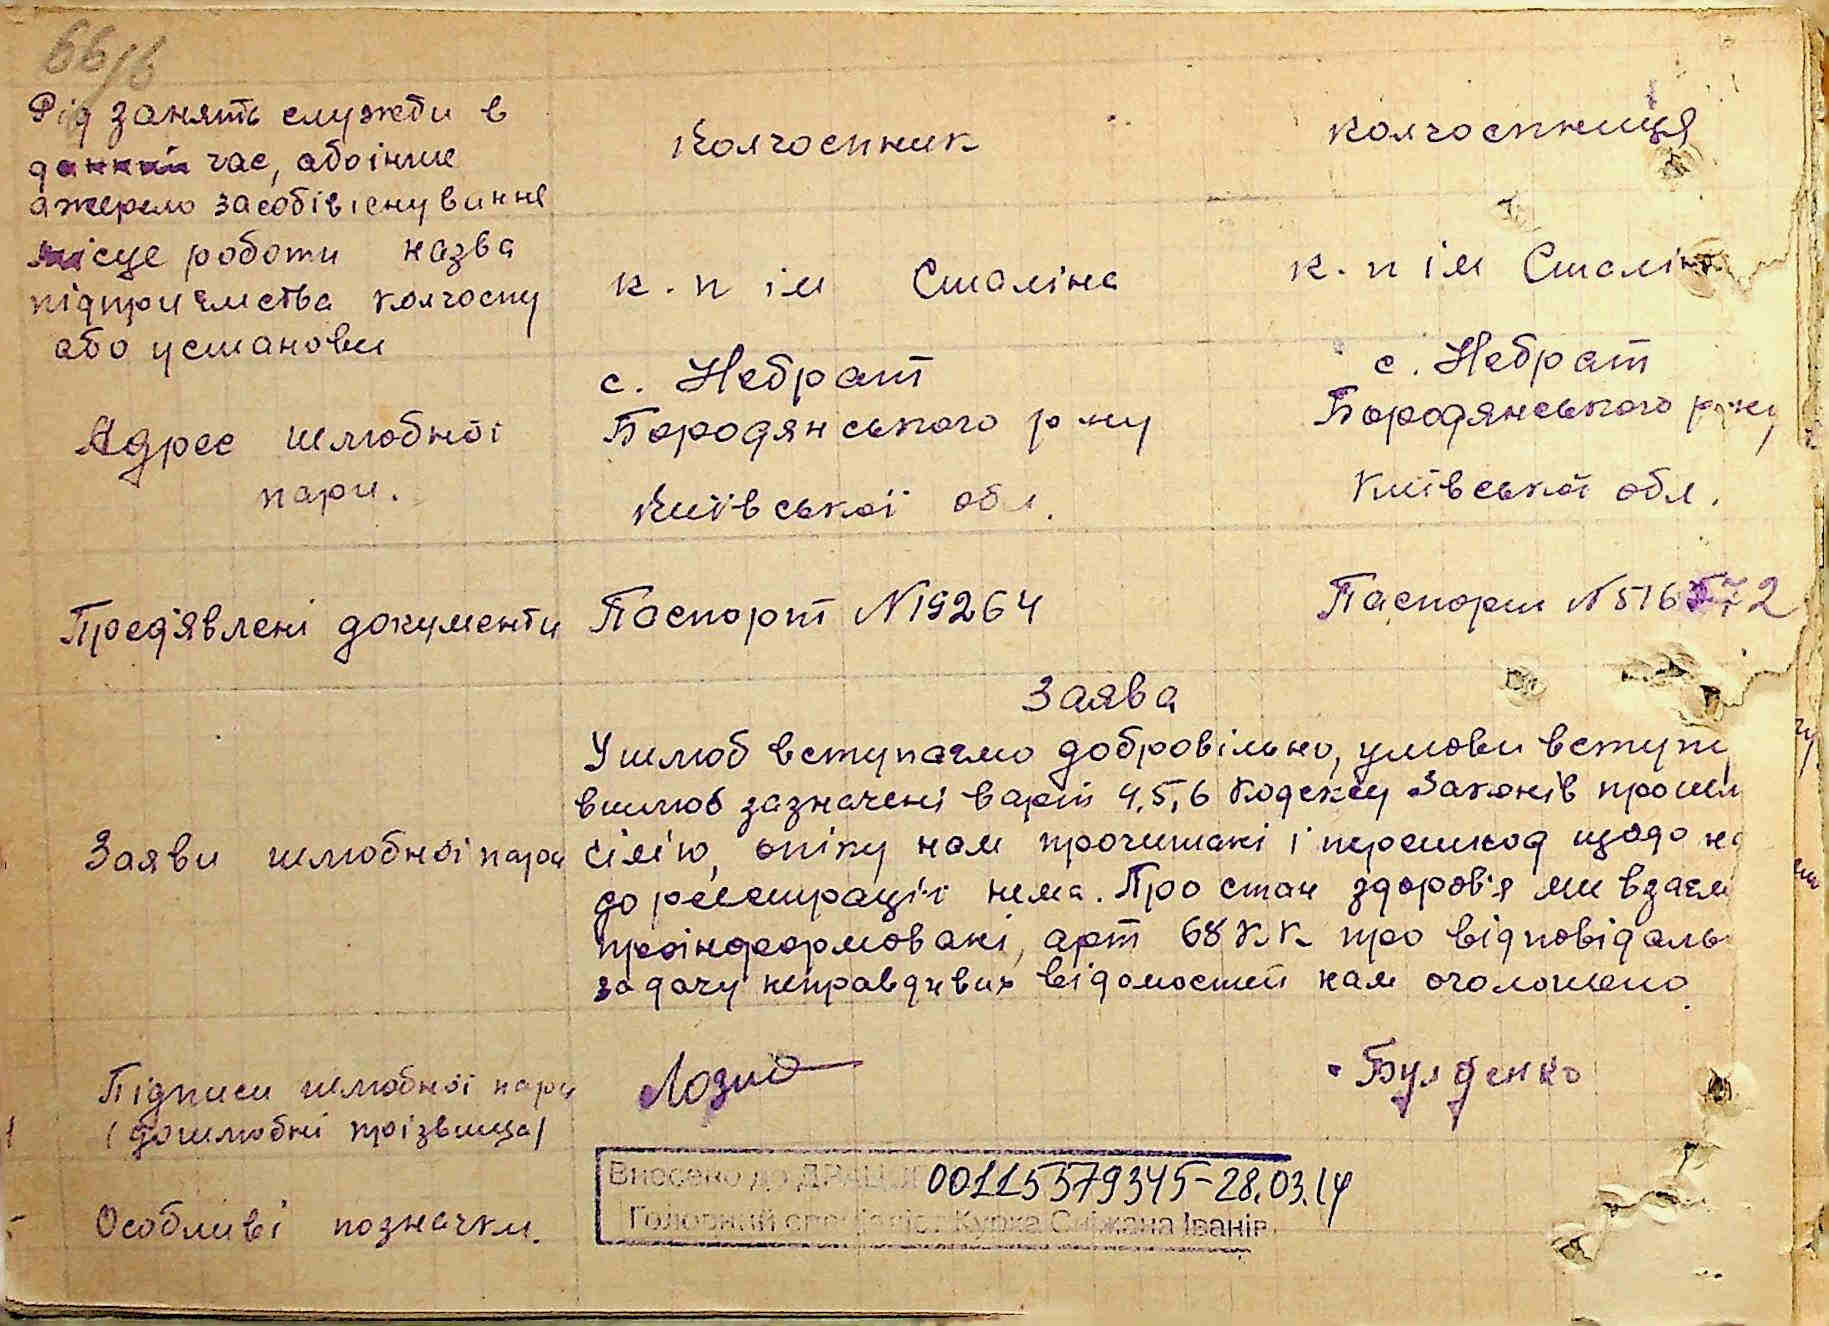 66/в
Рід занять служби в
данний час, або інше
джерело засобів існування
Колгоспник
колгоспниця
місце роботи назва
підприємства колгоспу
або установи
к.п ім Сталіна
к.п ім Сталіна
Адрес шлюбної
пари.
с. Небрат
Бородянського р ну
Київської обл.
с. Небрат
Бородянського р ну
Київської обл.
Пред'явлені документи
Паспорт №19264
Паспорт №516572
Заяви шлюбної пари
Заява
У шлюб вступаємо добровільно, умови вступу
в шлюб зазначені в арт 4,5,6 Кодексу Законів про шл
сім'ю, опіку нам прочитані і перешкод щодо на
до реєстрації нема. Про стан здоров'я ми взаєм
проінформовані, арт 68 К.К. про відповідаль
за дачу неправдивих відомостей нам оголошено.
Підписи шлюбної пари
(дошлюбні прізвища)
Лозид
Булденко
Особливі позначки.
Внесено до ДРАЦС 00115579345-28.03.14
Головний спеціаліст Курка Сніжана Іванів